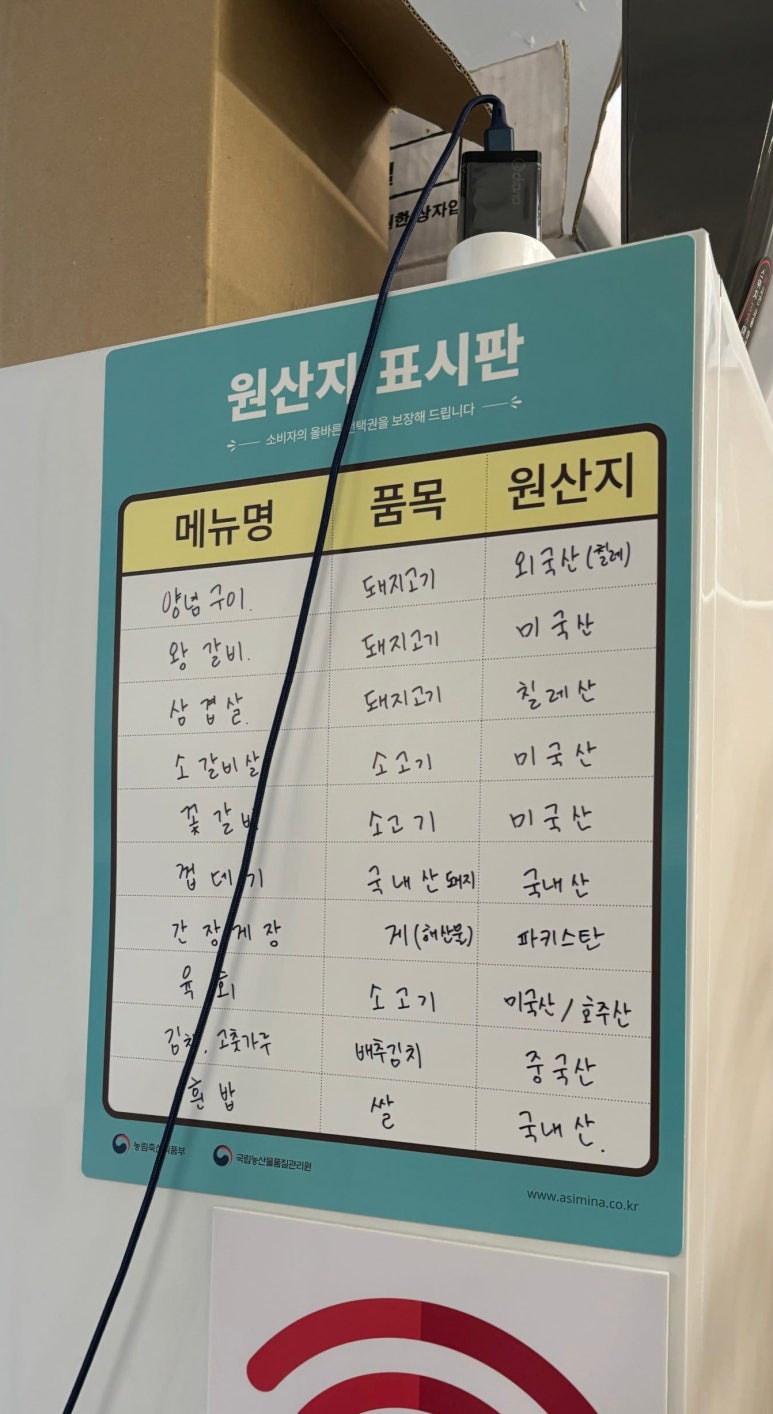 한 상자입
원산지 표시판
소비자의 올바른 선택권을 보장해 드립니다
메뉴명 품목 원산지
양념구이. 돼지고기 외국산(칠레)
왕갈비. 돼지고기 미국산
삼겹살. 돼지고기 칠레산
소갈비살 소고기 미국산
꽃갈비 소고기 미국산
껍데기 국내산돼지 국내산
간장게장 게(해산물) 파키스탄
육회 소고기 미국산/호주산
김치. 고춧가루 배추김치 중국산
흰밥 쌀 국내산.
농림축산식품부 국립농산물품질관리원
www.asimina.co.kr